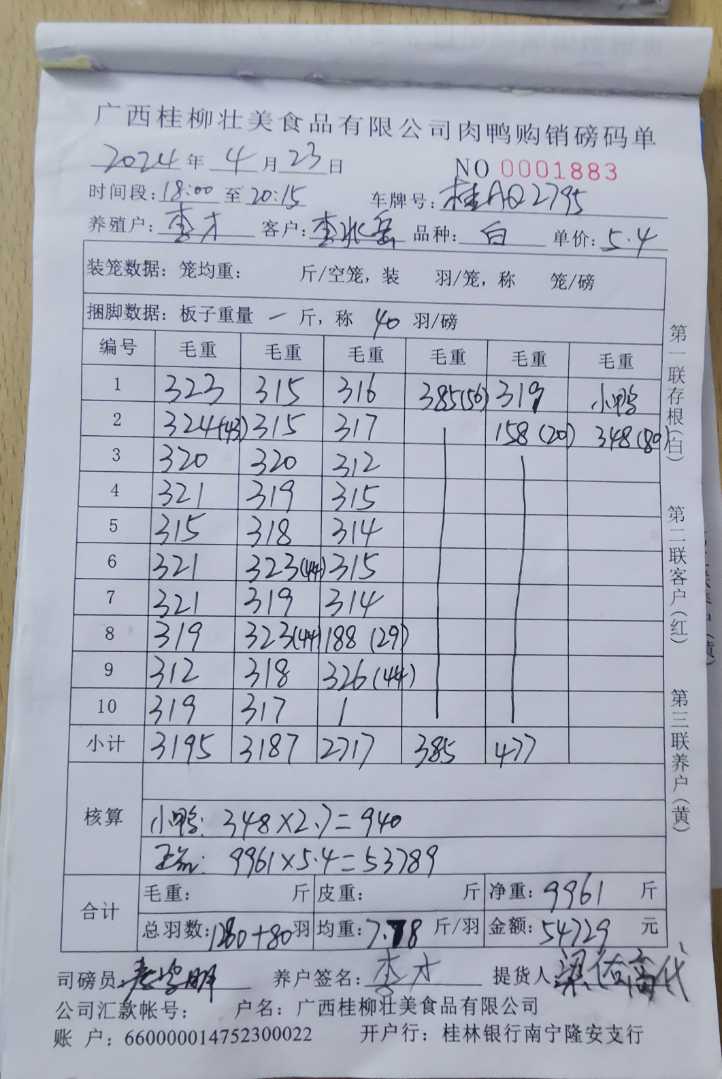 广西桂柳壮美食品有限公司肉鸭购销磅码单
2024年 4月23日 NO 0001883
时间段:18:00至20:15 车牌号:桂AQ2795
养殖户:李才 客户:李冰岳 品种:白 单价:5.4
装笼数据:笼均重: 斤/空笼,装 羽/笼,称 笼/磅
捆脚数据:板子重量 一 斤,称 40 羽/磅
编号 毛重 毛重 毛重 毛重 毛重 毛重
1 323 315 316 385(56) 319 小鸭
2 324(43) 315 317 158(20) 348(80)
3 320 320 312
4 321 319 315
5 315 318 314
6 321 323(44) 315
7 321 319 314
8 319 323(44) 188(29)
9 312 318 326(44)
10 319 317 /
小计 3195 3187 2717 385 477
核算
小鸭: 348×2.7=940
正品: 9961×5.4=53789
合计 毛重: 斤 皮重: 斤 净重:9961 斤
总羽数:1280+80羽 均重:7.78 斤/羽 金额:54729 元
司磅员: 养户签名:李才 提货人
公司汇款帐号: 户名:广西桂柳壮美食品有限公司
账 户:660000014752300022 开户行:桂林银行南宁隆安支行
第一联存根(白)
第二联客户(红)
第三联养户(黄)